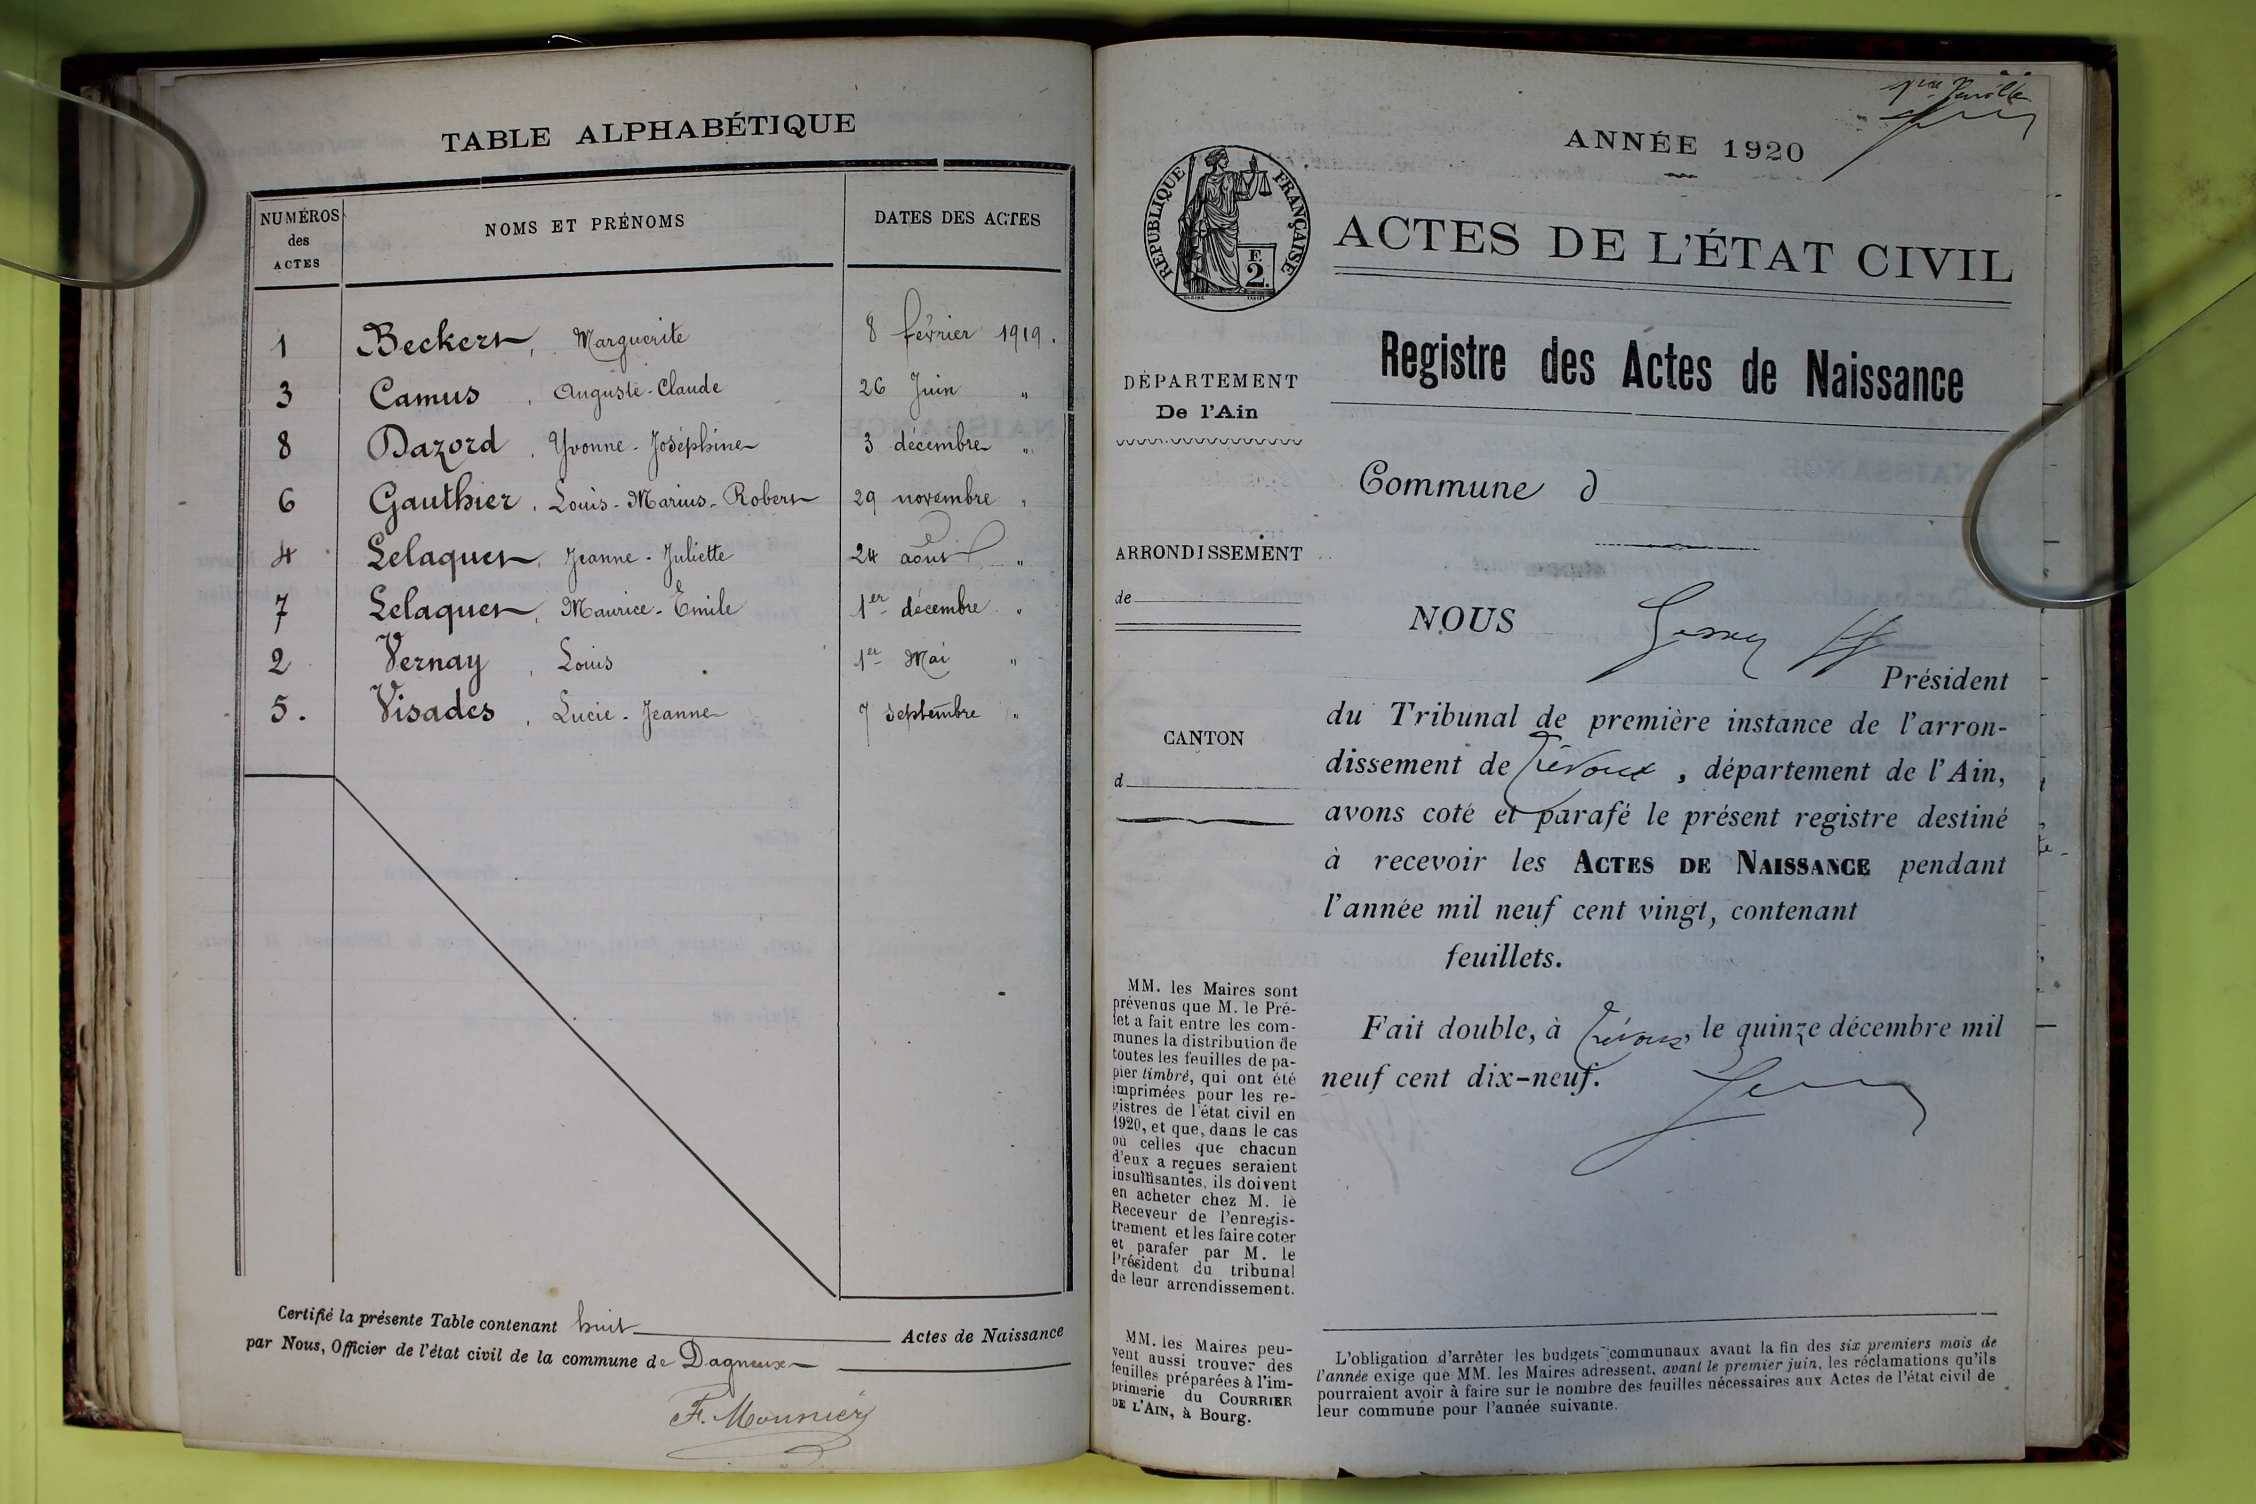 TABLE ALPHABÉTIQUE
NUMÉROS des ACTES NOMS ET PRÉNOMS DATES DES ACTES
1 Beckert, Marguerite 8 février 1919.
3 Camus, Auguste-Claude 26 Juin "
8 Dazord, Yvonne-Joséphine 3 décembre "
6 Gauthier, Louis-Marius-Robert 29 novembre "
4 Lelaquet, Jeanne-Juliette 24 août "
7 Lelaquet, Maurice-Emile 1er décembre "
2 Vernay, Louis 1er Mai "
5. Visades, Lucie-Jeanne 7 septembre "
Certifié la présente Table contenant huit Actes de Naissance
par Nous, Officier de l'état civil de la commune de Dagneux
F. Mounier
1re feuille
ANNÉE 1920
RÉPUBLIQUE FRANÇAISE
F.
2.
ACTES DE L'ÉTAT CIVIL
Registre des Actes de Naissance
DÉPARTEMENT
De l'Ain
Commune d
ARRONDISSEMENT
de
CANTON
d
NOUS
Président
du Tribunal de première instance de l'arron-
dissement de Trévoux, département de l'Ain,
avons coté et parafé le présent registre destiné
à recevoir les ACTES DE NAISSANCE pendant
l'année mil neuf cent vingt, contenant
feuillets.
Fait double, à Trévoux, le quinze décembre mil
neuf cent dix-neuf.
MM. les Maires sont
prévenus que M. le Pré-
fet a fait entre les com-
munes la distribution de
toutes les feuilles de pa-
pier timbré, qui ont été
imprimées pour les re-
gistres de l'état civil en
1920, et que, dans le cas
où celles que chacun
d'eux a reçues seraient
insuffisantes, ils doivent
en acheter chez M. le
Receveur de l'enregis-
trement et les faire coter
et parafer par M. le
Président du tribunal
de leur arrondissement.
MM. les Maires peu-
vent aussi trouver des
feuilles préparées à l'im-
primerie du COURRIER
DE L'AIN, à Bourg.
L'obligation d'arrêter les budgets communaux avant la fin des six premiers mois de
l'année exige que MM. les Maires adressent, avant le premier juin, les réclamations qu'ils
pourraient avoir à faire sur le nombre des feuilles nécessaires aux Actes de l'état civil de
leur commune pour l'année suivante.